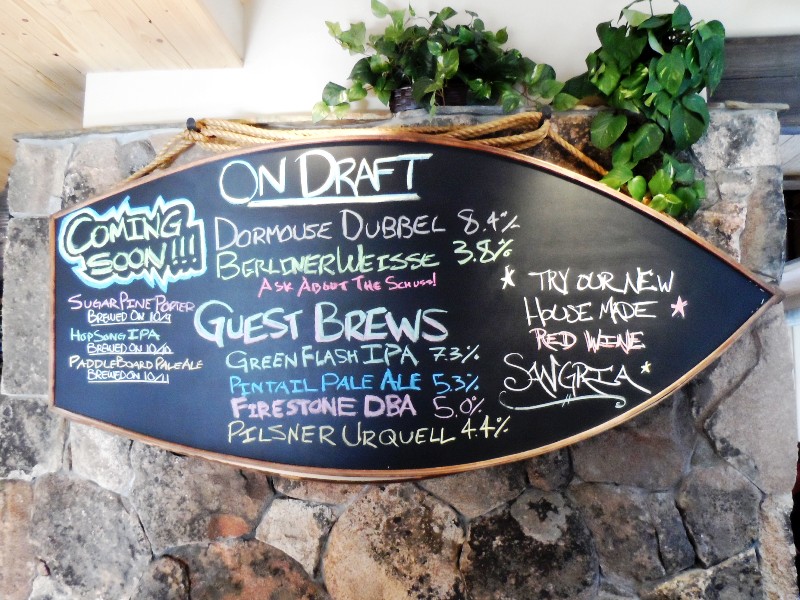 ON DRAFT
DORMOUSE DUBBEL 8.4%
BERLINER WEISSE 3.8%
ASK ABOUT THE SCHUSS!
COMING
SOON!!!
SUGAR PINE PORTER
BREWED ON 10/9
HOP SONG IPA
BREWED ON 10/10
PADDLEBOARD PALE ALE
BREWED ON 10/11
GUEST BREWS
GREEN FLASH IPA 7.3%
PINTAIL PALE ALE 5.3%
FIRESTONE DBA 5.0%
PILSNER URQUELL 4.4%
TRY OUR NEW
HOUSE MADE
RED WINE
SANGRIA